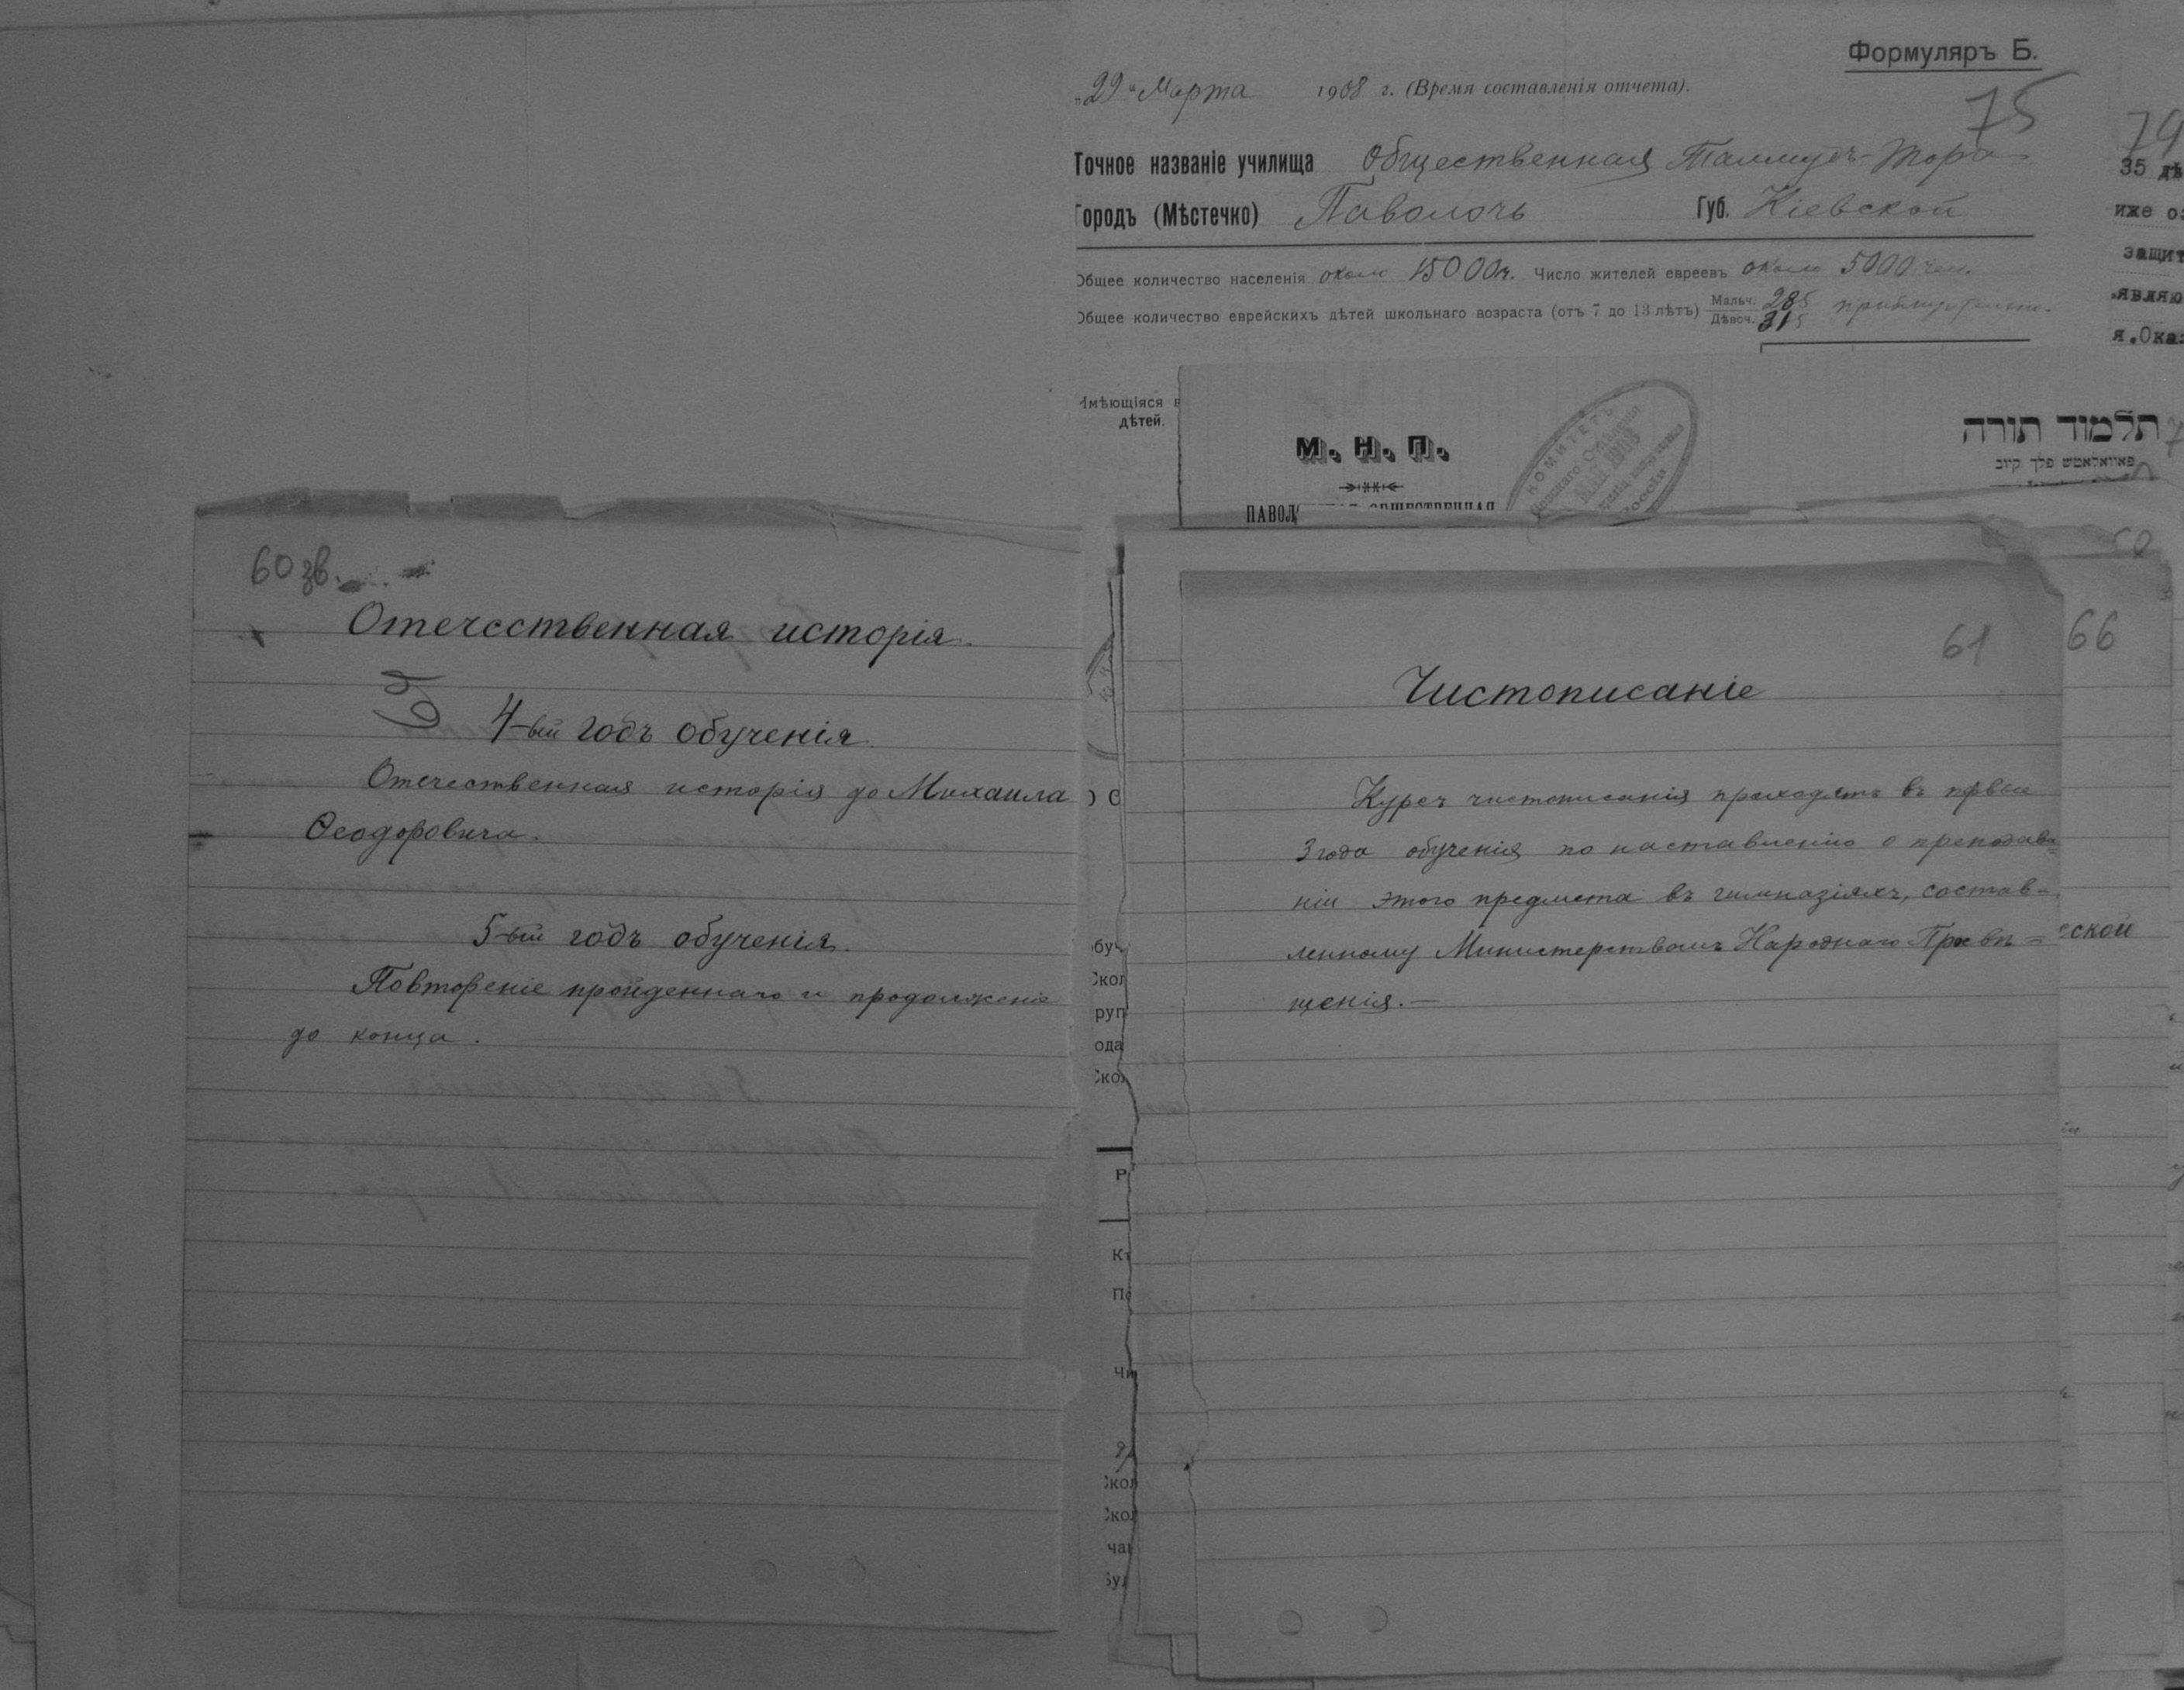 60 зв.
Отечественная исторія.
4-ый годъ обученія.
Отечественная исторія до Михаила
Ѳеодоровича.
5-ый годъ обученія.
Повтореніе пройденнаго и продолженіе
до конца.
Формуляръ Б.
„29“ Марта 1908 г. (Время составленія отчета).
75
Точное названіе училища Общественная Талмудъ-Тора
Городъ (Мѣстечко) Паволочь Губ. Кіевской
Общее количество населенія около 15000 ч. Число жителей евреевъ около 5000 чел.
Общее количество еврейскихъ дѣтей школьнаго возраста (отъ 7 до 13 лѣтъ) Мальч. 285
Дѣвоч. 315
Имѣющіяся в
дѣтей.
М. Н. П.
КОМИТЕТЪ
1908
Россіи
תלמוד תורה
פאוואלאטש פלך קיוב
ПАВОЛ ОБЩЕСТВЕННАЯ
79
35 дѣ
иже о
защит
являю
я.Ока
66
ской
61
Чистописаніе
Курсъ чистописанія проходятъ въ првые
3 года обученія по наставленію о преподава=
ніи этого предмета въ гимназіяхъ, состав=
ленному Министерствомъ Народнаго Просвѣ=
щенія.—